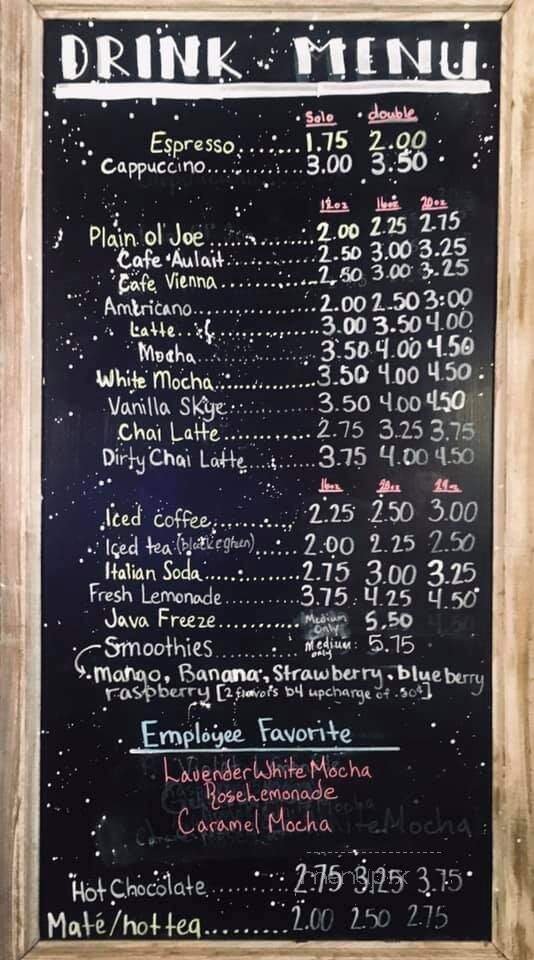 DRINK MENU
Solo double
Espresso....... 1.75 2.00
Cappuccino............ 3.00 3.50
12oz 16oz 20oz
Plain ol' Joe............ 2.00 2.25 2.75
Cafe Aulait............ 2.50 3.00 3.25
Cafe Vienna............ 2.50 3.00 3.25
Americano............ 2.00 2.50 3:00
Latte............ 3.00 3.50 4.00
Mocha............ 3.50 4.00 4.50
White Mocha............ 3.50 4.00 4.50
Vanilla Skye............ 3.50 4.00 4.50
Chai Latte............ 2.75 3.25 3.75
Dirty Chai Latte....... 3.75 4.00 4.50
16oz 20oz 24oz
Iced coffee............ 2.25 2.50 3.00
Iced tea (black & green)..... 2.00 2.25 2.50
Italian Soda............ 2.75 3.00 3.25
Fresh Lemonade............ 3.75 4.25 4.50
Java Freeze............ Medium only 5.50
Smoothies............ Medium only 5.75
mango, Banana, Strawberry, blueberry
raspberry [2 flavors b4 upcharge of .50¢]
Employee Favorite
Lavender White Mocha
Rose Lemonade
Caramel Mocha
Hot Chocolate............ 2.75 3.25 3.75
Maté/hot tea............ 2.00 2.50 2.75